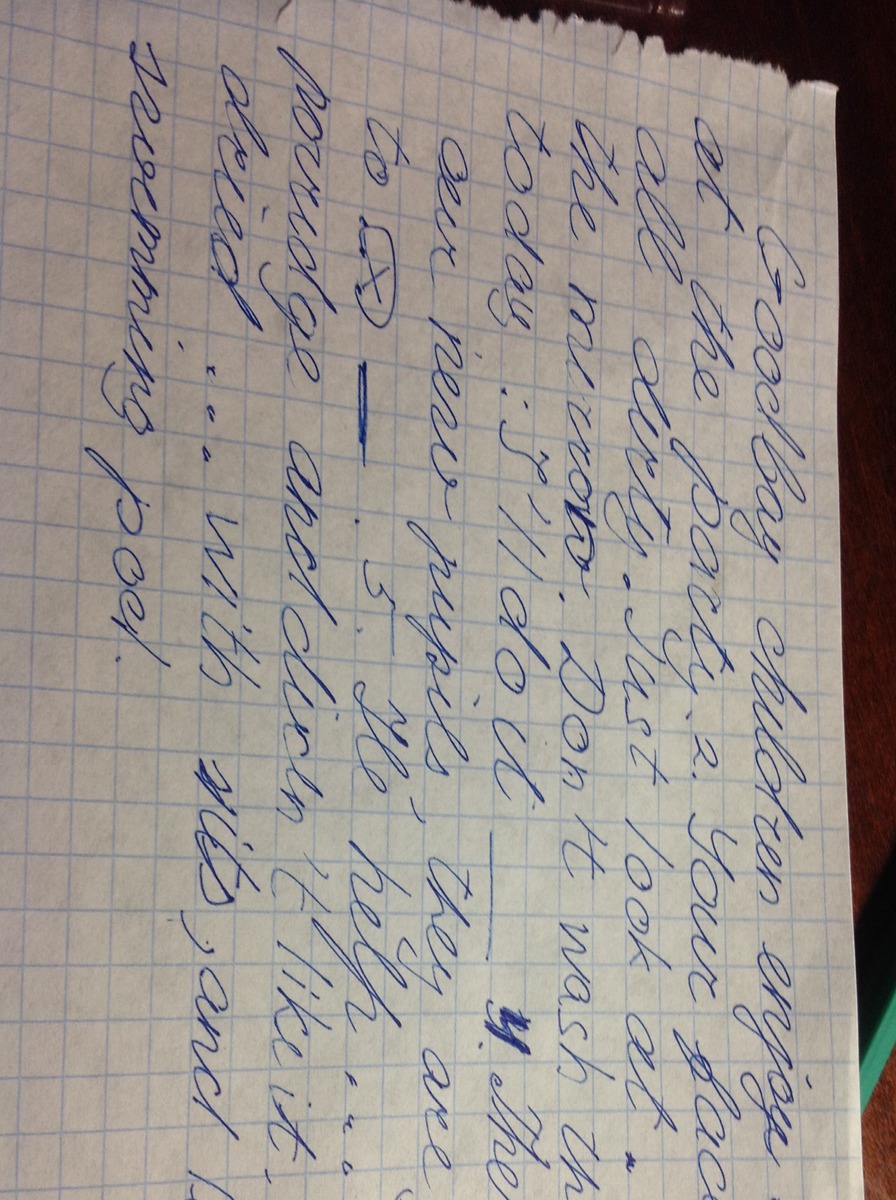 Goodbay children enjoy
at the party. 2. Your fac
all dirty. Just look at .
the mirror. Don't wash th
today : I'll do it ____ 4. The
our new pupils, they are
to ____ . 5. He help ...
porridge and didn't like it,
dried ... with nits, and
swimming pool.